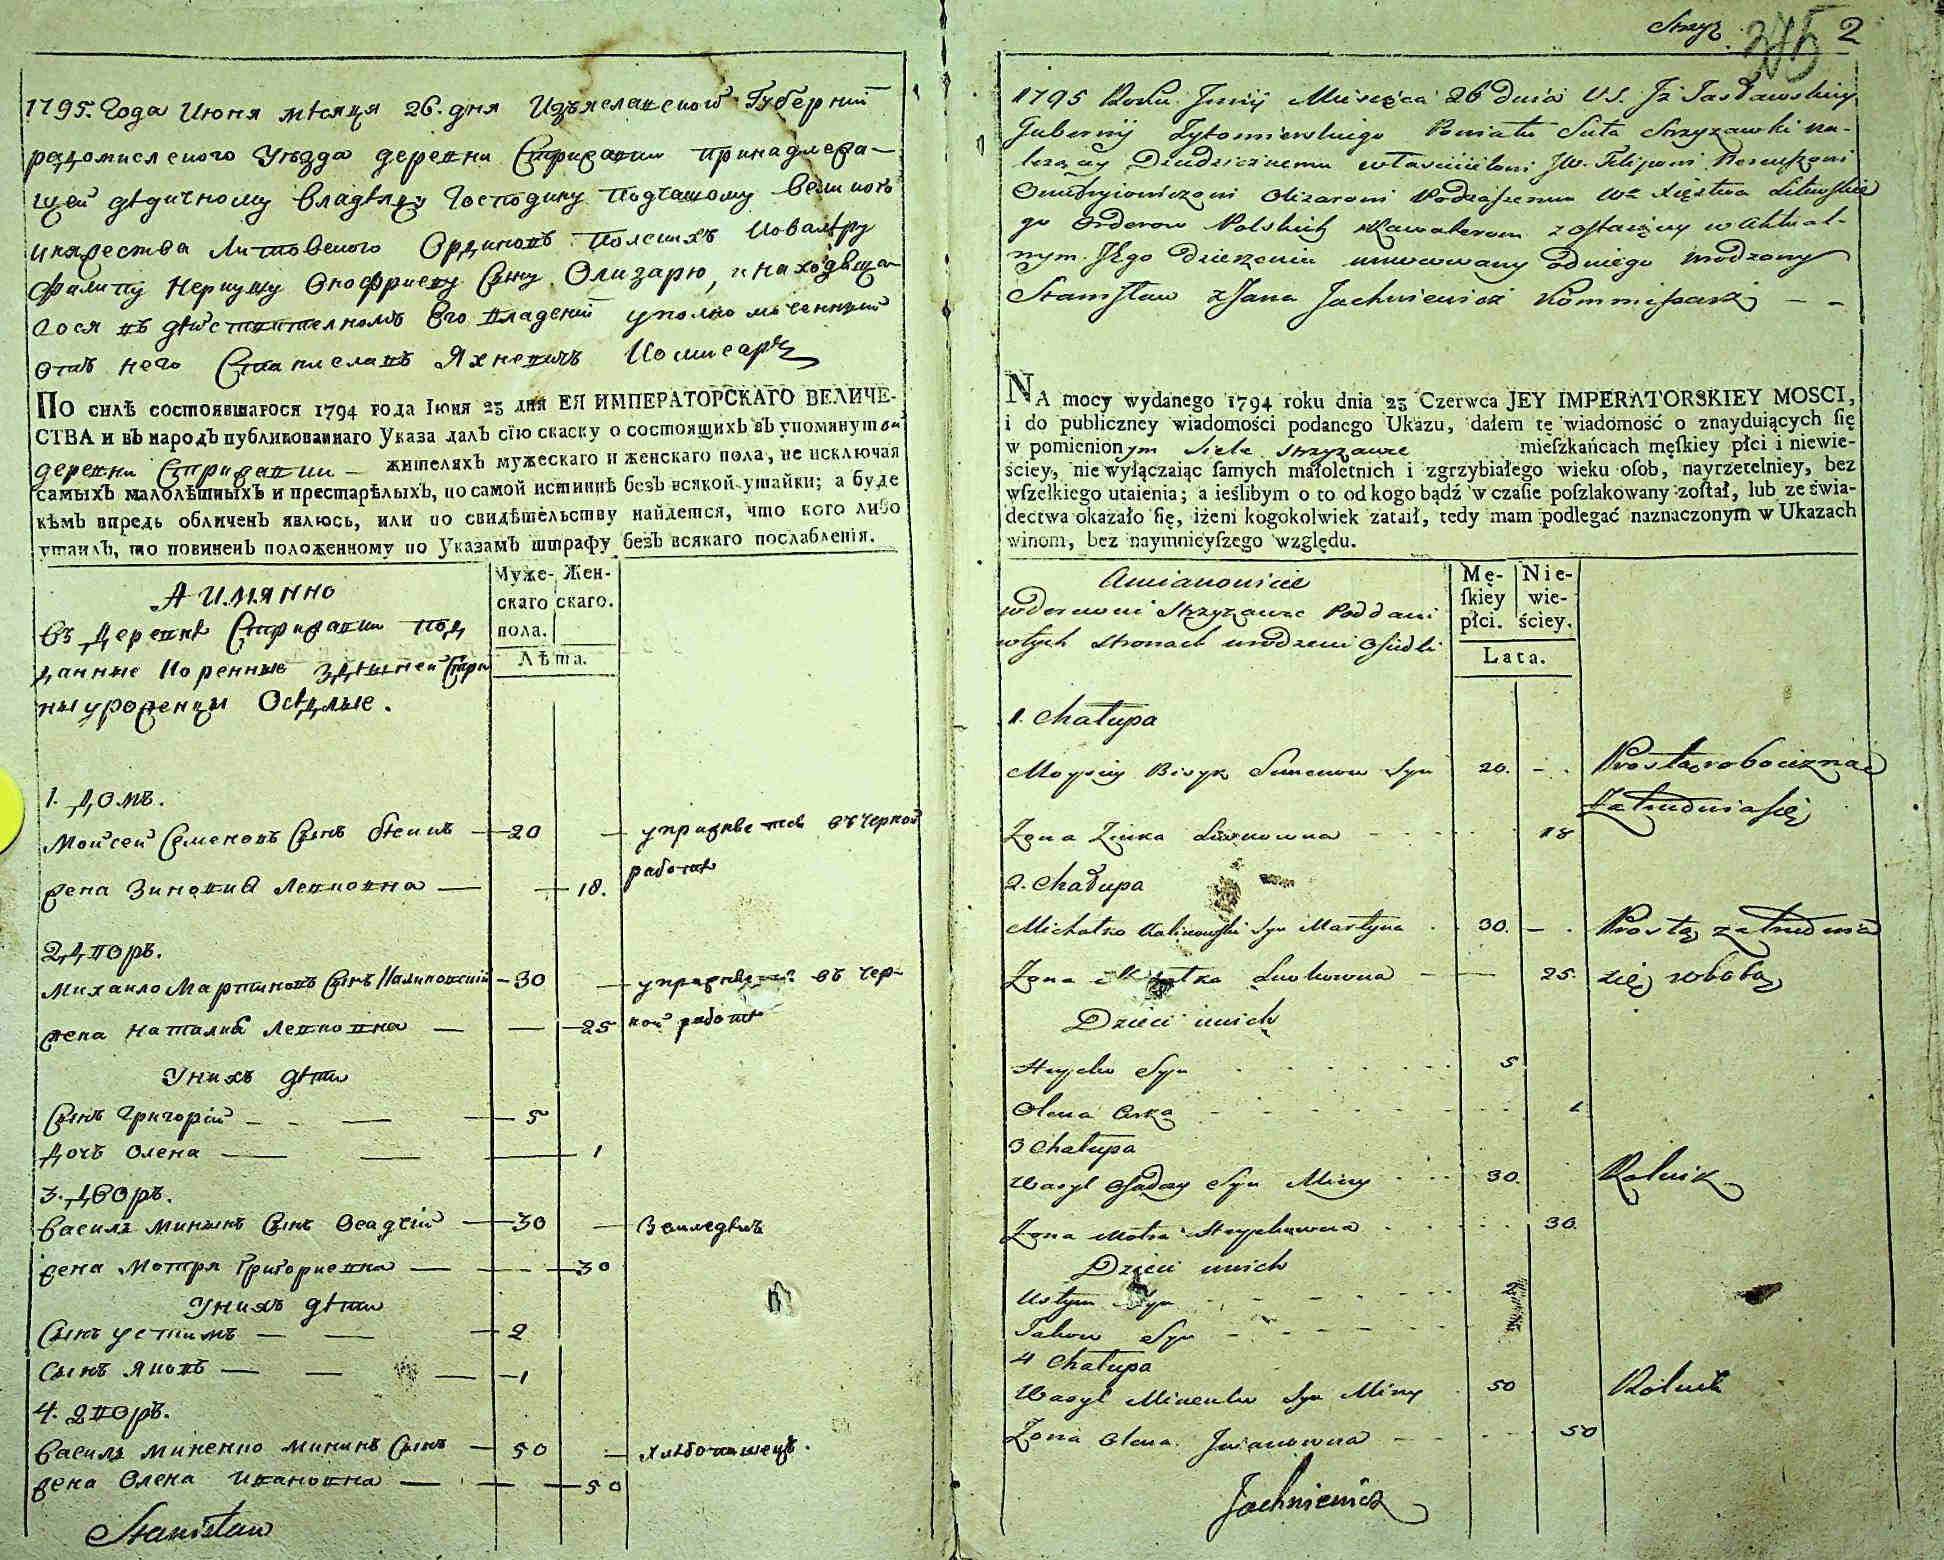 1795. Года Июня мѣсяца 26. дня Изъяславской Губерніи
радомислского Уѣзда деревни Стрижавки принадлежа-
щей дѣдичному владѣлцу Господину Подчашому великого
княжества Литовского Ординовъ Полскихъ Кавалѣру
Филипу Нерїушу Онофриеву Сыну Олизарю, и находяща-
гося въ дѣйствителномъ Его владѣнїи уполномоченный
отъ него Станиславъ Яхневичъ Комисаръ
По силѣ состоявшагося 1794 года Іюня 23 дня ЕЯ ИМПЕРАТОРСКАГО ВЕЛИЧЕ-
СТВА и въ народъ публикованнаго Указа далъ сїю скаску о состоящихъ въ упомянутой
деревни Стрижавки — жителяхъ мужескаго и женскаго пола, не исключая
самыхъ малолѣтныхъ и престарѣлыхъ, по самой истиннѣ безъ всякой утайки; а буде
кѣмъ впредь обличенъ явлюсь, или по свидѣтельству найдется, что кого либо
утаилъ, то повиненъ положенному по Указамъ штрафу безъ всякаго послабленїя.
А имянно
въ Деревнѣ Стрижавки под
данные Коренные здѣшней Стри
ны уроженцы Осѣдлые.
Муже-
скаго
пола.
Жен-
скаго.
Лѣта.
1. Домъ.
Моисей Семеновъ Сынъ — 20 — упражняется въ черной
работѣ
жена Зиновия Левковна — 18.
2. Дворъ.
Михаило Мартиновъ Сынъ Калиновский — 30 — упражняется въ чер-
ной работѣ
жена Наталия Левковна — — 25
Унихъ дѣти
Сынъ Григорій — — 5
Дочъ Олена — — 1
3. Дворъ.
Василь Мининъ Сынъ Осадчій — 30 — Земледѣлъ
жена Мотря Григориевна — — 30
Унихъ дѣти
Сынъ устимъ — — 2
Сынъ Яковъ — — 1
4. Дворъ.
Василь Миненко Мининъ Сынъ — 50 — хлѣбопашецъ.
жена Олена Ивановна — — 50
Stanisław
Stryż. 375 2
1795 Roku Junij Miesięca 26 dnia V.S. Jż Jasławskiey
Gubernij Żytomierskiego Powiatu Sieła Stryżawki na-
leżący Dziedzicznemu właścicielowi JW. Filipowi Nereuszowi
Onufryiowiczowi Olizarowi Podczaszemu Wo Xięstwa Litewskie
go Orderow Polskich Kawalerowi zostaiący w Aktual-
nym JEgo dzierżeniu umocowany od niego urodzony
Stanisław z Jana Jachniewicz Kommissarz — —
NA mocy wydanego 1794 roku dnia 23 Czerwca JEY IMPERATORSKIEY MOSCI,
i do publiczney wiadomości podanego Ukazu, dałem tę wiadomość o znayduiących ſię
w pomienionym Siele Stryżawce mieſzkańcach męſkiey płci i niewie-
ściey, nie wyłączaiąc ſamych małoletnich i zgrzybiałego wieku oſob, nayrzetelniey, bez
wſzelkiego utaienia; a ieślibym o to od kogo bądź w czaſie poſzlakowany zoſtał, lub ze świa-
dectwa okazało ſię, iżeni kogokolwiek zataił, tedy mam podlegać naznaczonym w Ukazach
winom, bez naymnieyſzego względu.
Amianowicie
wderewni Stryżawce Poddani
wtych Stronach urodzeni Osiedli
Mę-
ſkiey
płci.
Nie-
wie-
ściey.
Lata.
1. Chałupa
Moysiey Semenow Syn 20. — Prostą robocizną
Zatrudnia się
Zona Zinka Lewkowna 18
2. Chałupa
Michałko Kalinowski Syn Martyna 30. — Prostą zatrudnia
się robotą
Zona Lewkowna — 25.
Dzieci unich
Hryćko Syn 5
Olena Curka 1
3 Chałupa
Wasyl Osadczy Syn Miny 30. Rolnik
Zona Motra Hryhorowna 30.
Dzieci unich
Ustym Syn 2
Jakow Syn
4 Chałupa
Wasyl Minenko Syn Miny 50 Rolnik
Zona Olena Jwanowna 50
Jachniewicz